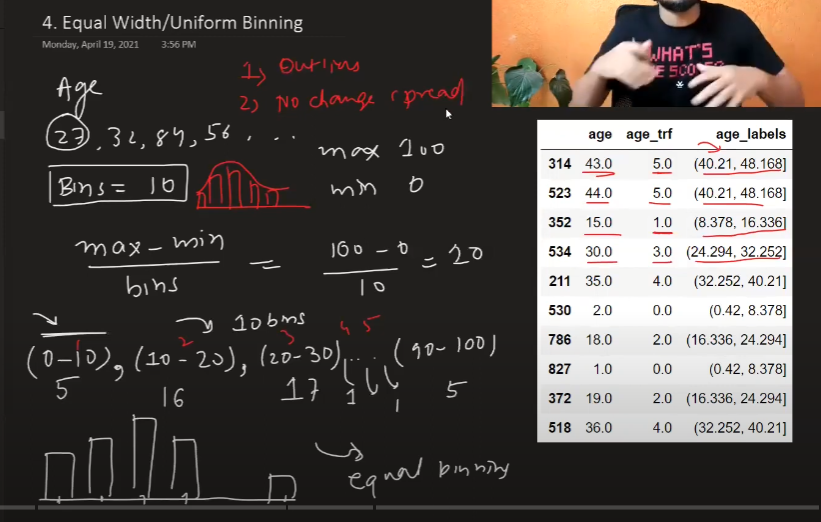 4. Equal Width/Uniform Binning
Monday, April 19, 2021 3:56 PM
1) Outliers
2) No change spread
Age
27, 32, 84, 56, . ..
Bins = 10
max 100
min 0
max - min
bins
=
100 - 0
10
= 20
10 bins
1 2 3 4 5
(0-10), (10-20), (20-30) ... (90-100)
5 16 17 1 1 5
equal binning
WHAT'S
age age_trf age_labels
314 43.0 5.0 (40.21, 48.168]
523 44.0 5.0 (40.21, 48.168]
352 15.0 1.0 (8.378, 16.336]
534 30.0 3.0 (24.294, 32.252]
211 35.0 4.0 (32.252, 40.21]
530 2.0 0.0 (0.42, 8.378]
786 18.0 2.0 (16.336, 24.294]
827 1.0 0.0 (0.42, 8.378]
372 19.0 2.0 (16.336, 24.294]
518 36.0 4.0 (32.252, 40.21]